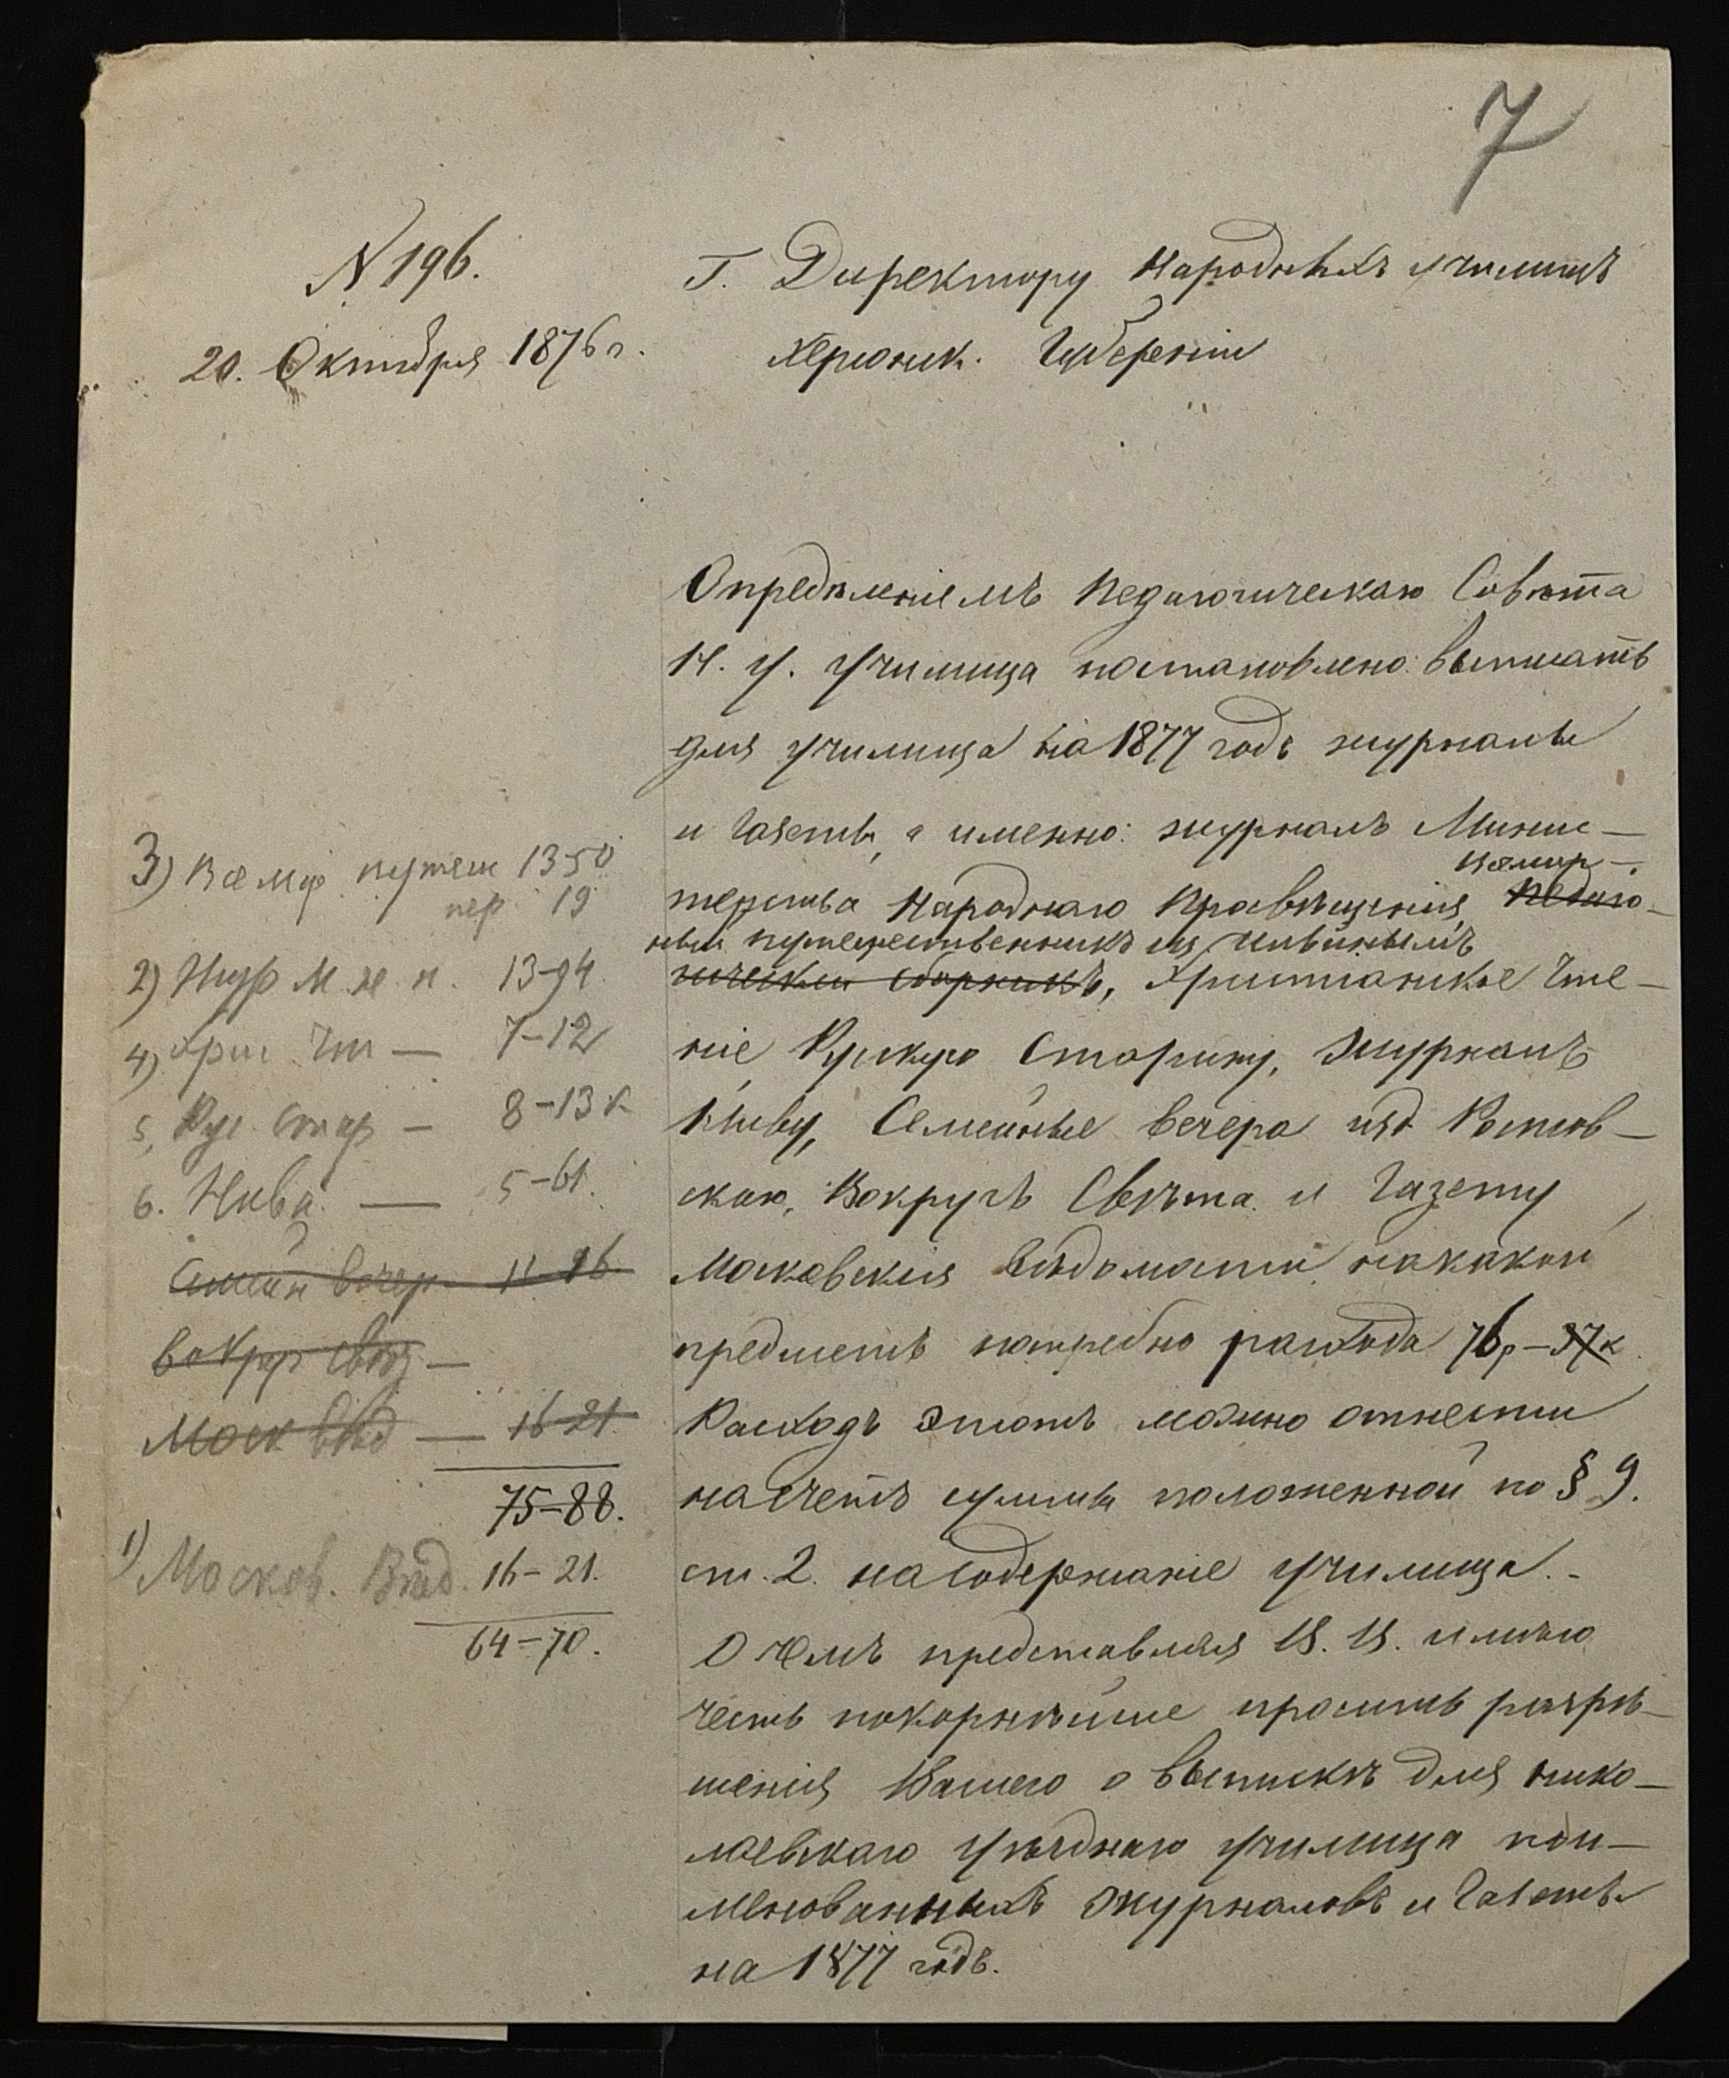 7
N 196.
20. Октября 1876 г.
Г. Директору Народныхъ училищъ
Херсонск. Губерніи
Опредѣленіемъ Педагогическаго Совѣта
Н. У. Училища постановлено: выписать
для училища на 1877 годъ журналы
и газеты, а именно: журналъ Минис-
всемир-
терства Народнаго Просвѣщенія, Педаго-
ный путешественникъ
гическій Сборникъ, Христіанское Чте-
ніе, Русскую Старину, Журналъ
Ниву, Семейные вечера изд. Ростов-
скаго, Вокругъ Свѣта и Газету
Московскія Вѣдомости, на каковой
предметъ потребно расхода 76 р – 37 к
Расходъ этотъ можно отнести
на счетъ суммы положенной по § 9.
ст. 2. на содержаніе училища.
О чемъ представляя В. В. имѣю
честь покорнѣйше просить разрѣ-
шенія Вашего о выпискѣ для Нико-
лаевскаго Уѣзднаго Училища пои-
менованныхъ Журналовъ и Газеты
на 1877 годъ.
3) Всемір. путеш 13 50
пер. 19
2) Жур М. н. п. 13-94
4) Хрис. Чт – 7-12
5, Рус. Стар – 8-13 к
6. Нива – 5-61.
Семейн вечер 11 16
Вокруг Свѣт –
Моск Вѣд – 16 21.
75-88.
1) Москов. Вѣд. 16-21.
64-70.